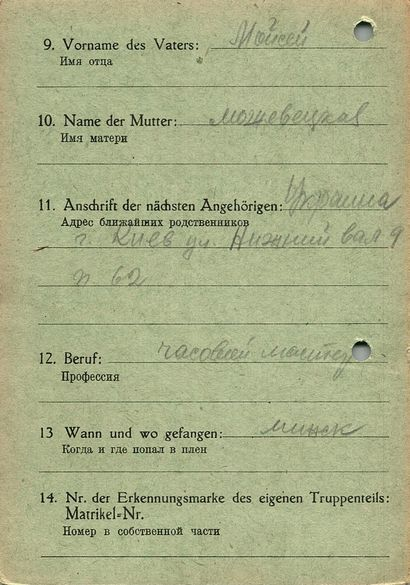 9. Vorname des Vaters: Мойсей
Имя отца
10. Name der Mutter: можевецкая
Имя матери
11. Anschrift der nächsten Angehörigen: Украина
Адрес ближайших родственников
г. Киев ул. Нижний вал 9
п 62
12. Beruf: часовей мастер
Профессия
13 Wann und wo gefangen: минск
Когда и где попал в плен
14. Nr. der Erkennungsmarke des eigenen Truppenteils:
Matrikel-Nr.
Номер в собственной части